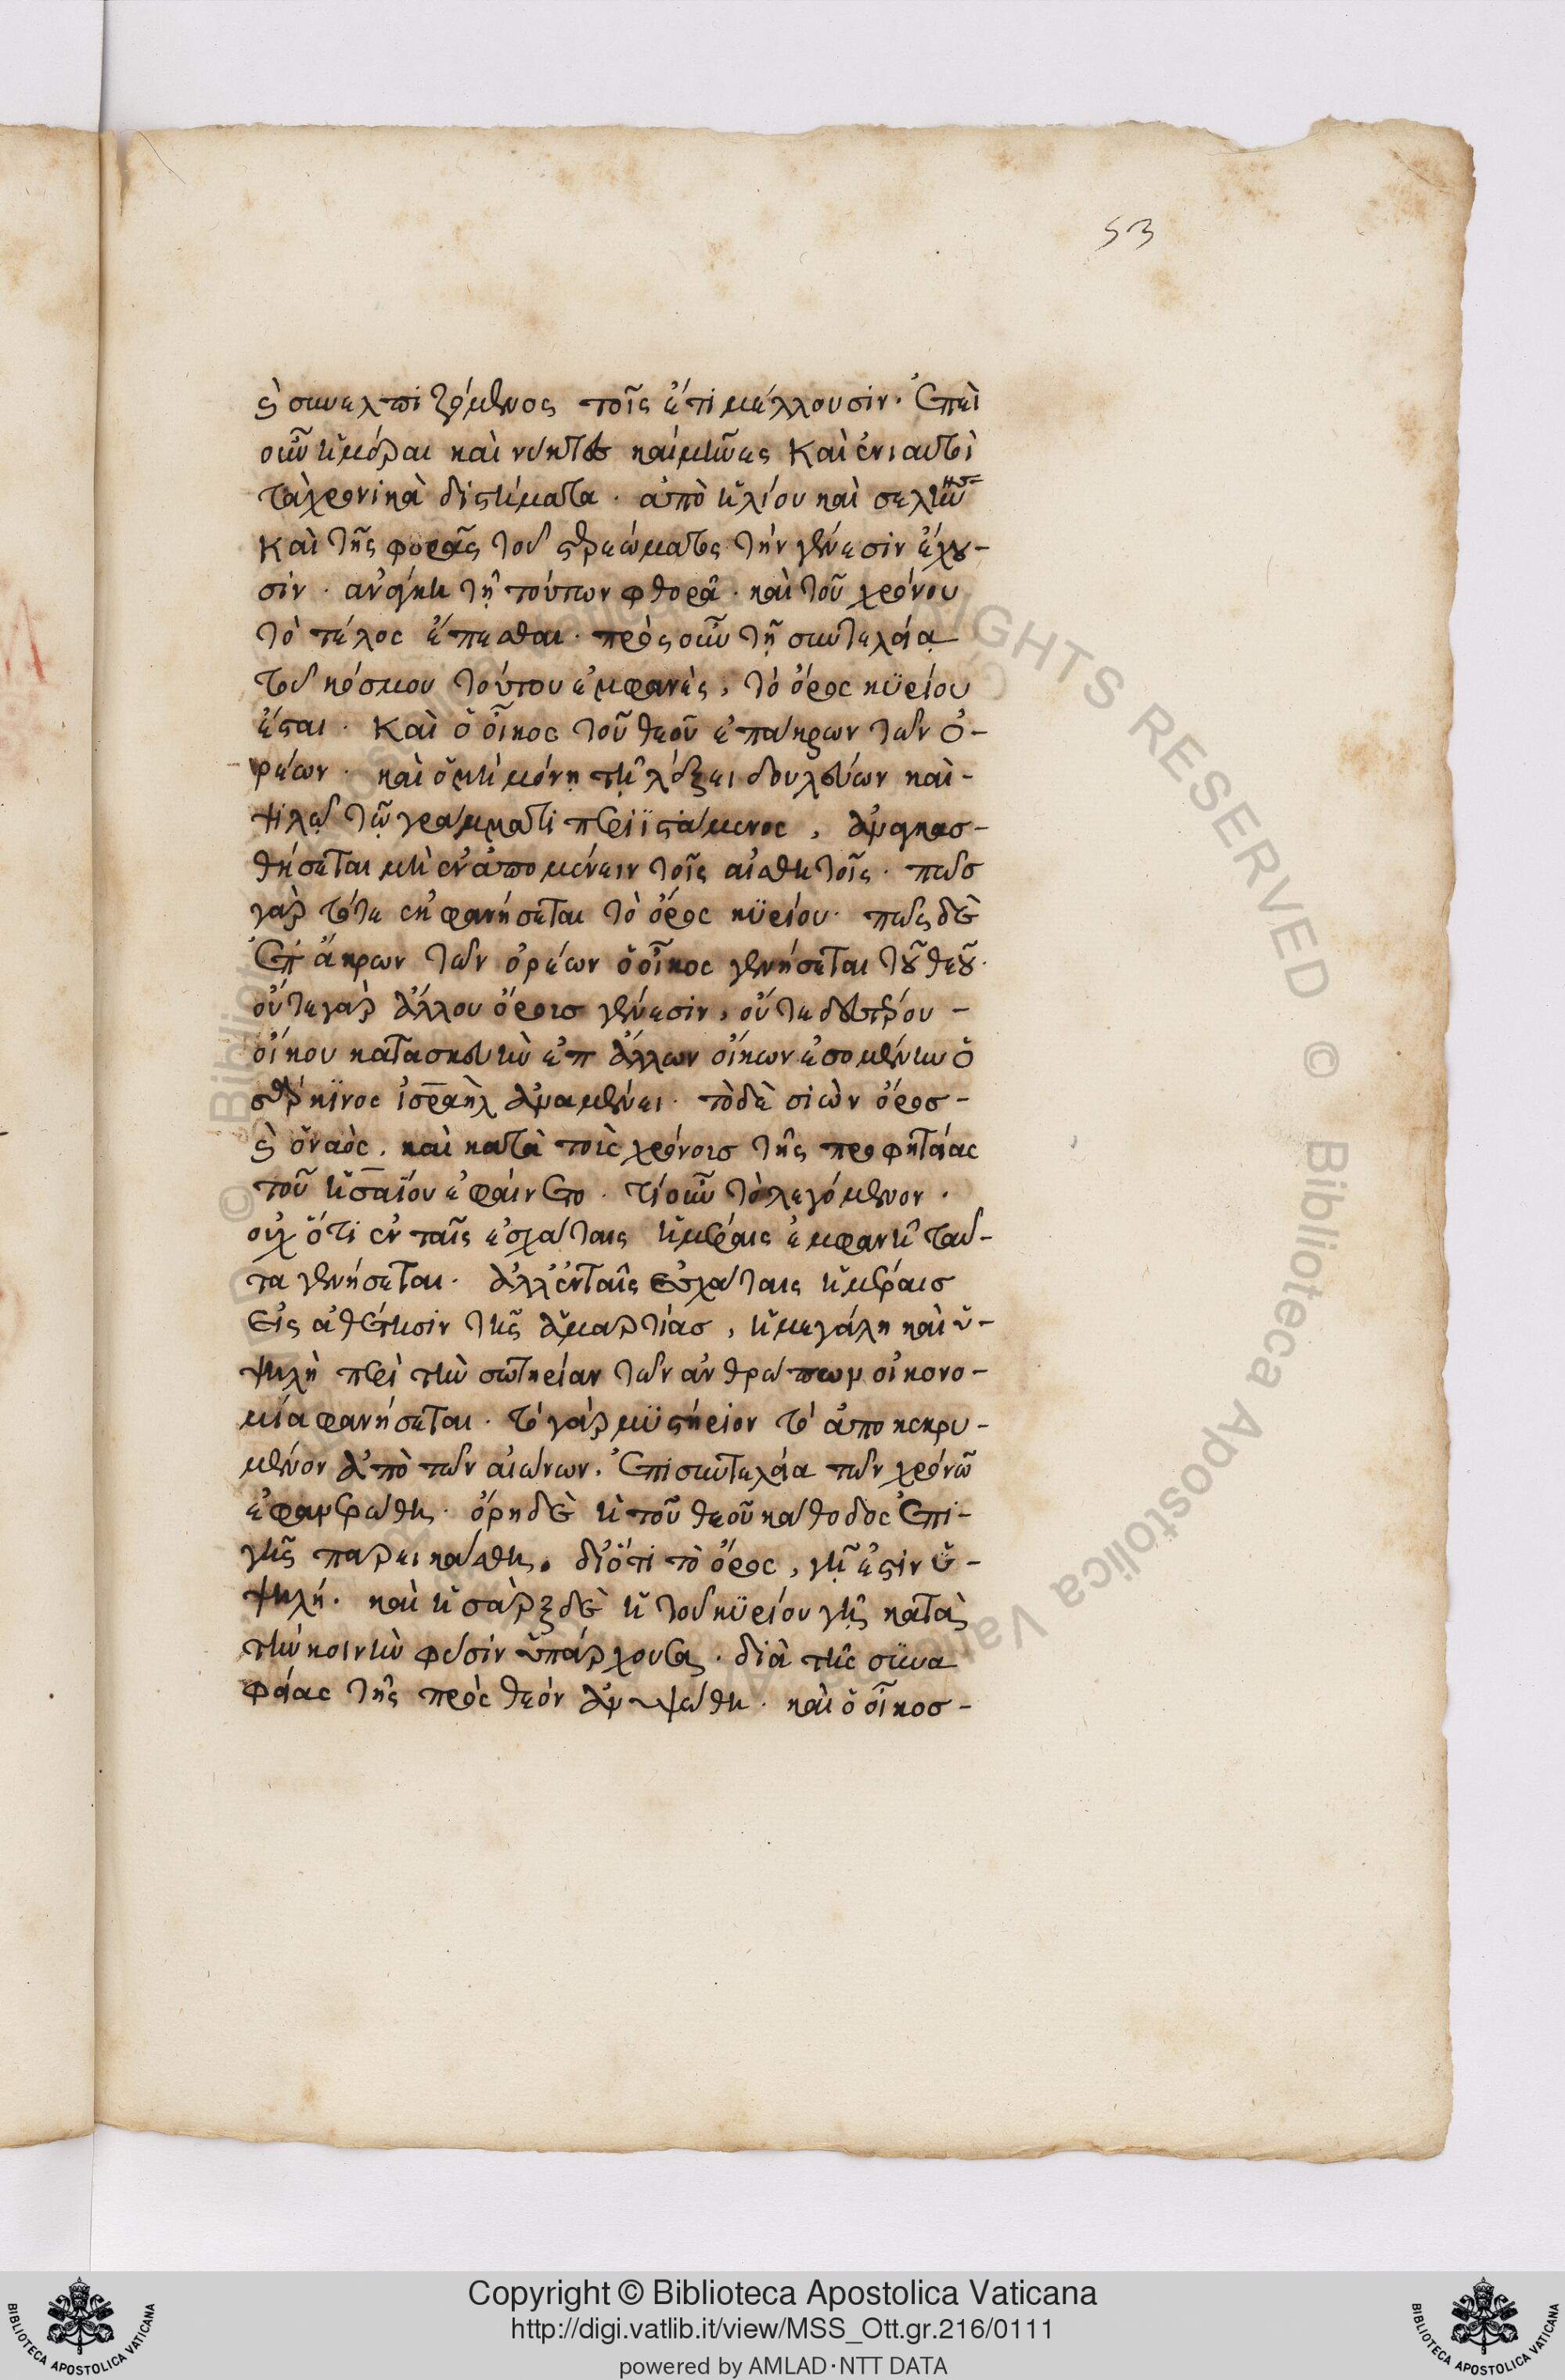 53
ϛ̀ συνελπιζόμενος τοῖς ἔτι μέλλουσιν. Ἐπεὶ
οὖν ἡμέραι καὶ νύκτες καὶ μῆνες καὶ ἐνιαυτοὶ
τὰ χρονικὰ διστήματα. ἀπὸ ἡλίου καὶ σελήνησ
καὶ τῆς φορᾶς τοῦ στερεώματος τὴν γένεσιν ἔχου-
σιν. ἀνάγκη τῇ τούτων φθορᾷ. καὶ τοῦ χρόνου
τὸ τέλος ἕπεσθαι. πρὸς οὖν τῇ συντελείᾳ
τοῦ κόσμου τούτου ἐμφανὲς, τὸ ὄρος κϋρίου
ἔσται. καὶ ὁ οἶκος τοῦ θεοῦ ἐπ ἄκρων τῶν ὀ-
ρέων. καὶ ὁ μὴ μόνῃ τῇ λέξει δουλεύων καὶ-
ψιλῷ τῷ γράμματι περιϊστάμενος, ἀναγκασ-
θήσεται μὴ ἐναπομένειν τοῖς αἰσθητοῖς. πῶσ
γὰρ τότε ἐκφανήσεται τὸ ὄρος κϋρίου. πῶς δὲ
ἐπ ἄκρων τῶν ὀρέων ὁ οἶκος γενήσεται τοῦ θεοῦ.
οὔτε γὰρ ἄλλου ὄρουσ γένεσιν, οὔτε δευτέρου-
οἴκου κατασκευὴν ἐπ ἄλλων οἴκων ἐσομένην ὁ
σάρκϊνος ἰσραὴλ ἀναμένει. τὸ δὲ σιὼν ὄροσ-
ϛ̀ ὁ ναὸς. καὶ κατὰ τοὺς χρόνουσ τῆς προφητείας
τοῦ ἡσαΐου ἐφαίνετο. τί οὖν τὸ λεγόμενον.
οὐχ ὅτι ἐν ταῖς ἐσχάταις ἡμέραις ἐμφανῆ ταῦ-
τα γενήσεται. ἀλλ ἐν ταῖς ἐσχάταις ἡμέραισ
εἰς ἀθέτησιν τῆς ἁμαρτίασ, ἡ μεγάλη καὶ ὑ-
ψηλὴ περὶ τὴν σωτηρίαν τῶν ἀνθρώπων οἰκονο-
μία φανήσεται. τὸ γὰρ μϋστήριον τὸ ἀποκεκρυ-
μένον ἀπὸ τῶν αἰώνων. ἐπὶ συντελεία τῶν χρόνων
ἐφανερώθη. ὄρη δὲ ἡ τοῦ θεοῦ κάθοδος ἐπὶ-
γῆς παρεικάσθη. διότι τὸ ὄρος, γῆ ἐστιν ὑ-
ψηλή. καὶ ἡ σὰρξ δὲ ἡ τοῦ κϋρίου γῆς κατὰ
τὴν κοινὴν φύσιν ὑπάρχουσα. διὰ τῆς σϋνα
φείας τῆς πρὸς θεόν ἀνυψώθη. καὶ ὁ οἶκοσ-
Copyright © Biblioteca Apostolica Vaticana
http://digi.vatlib.it/view/MSS_Ott.gr.216/0111
powered by AMLAD·NTT DATA